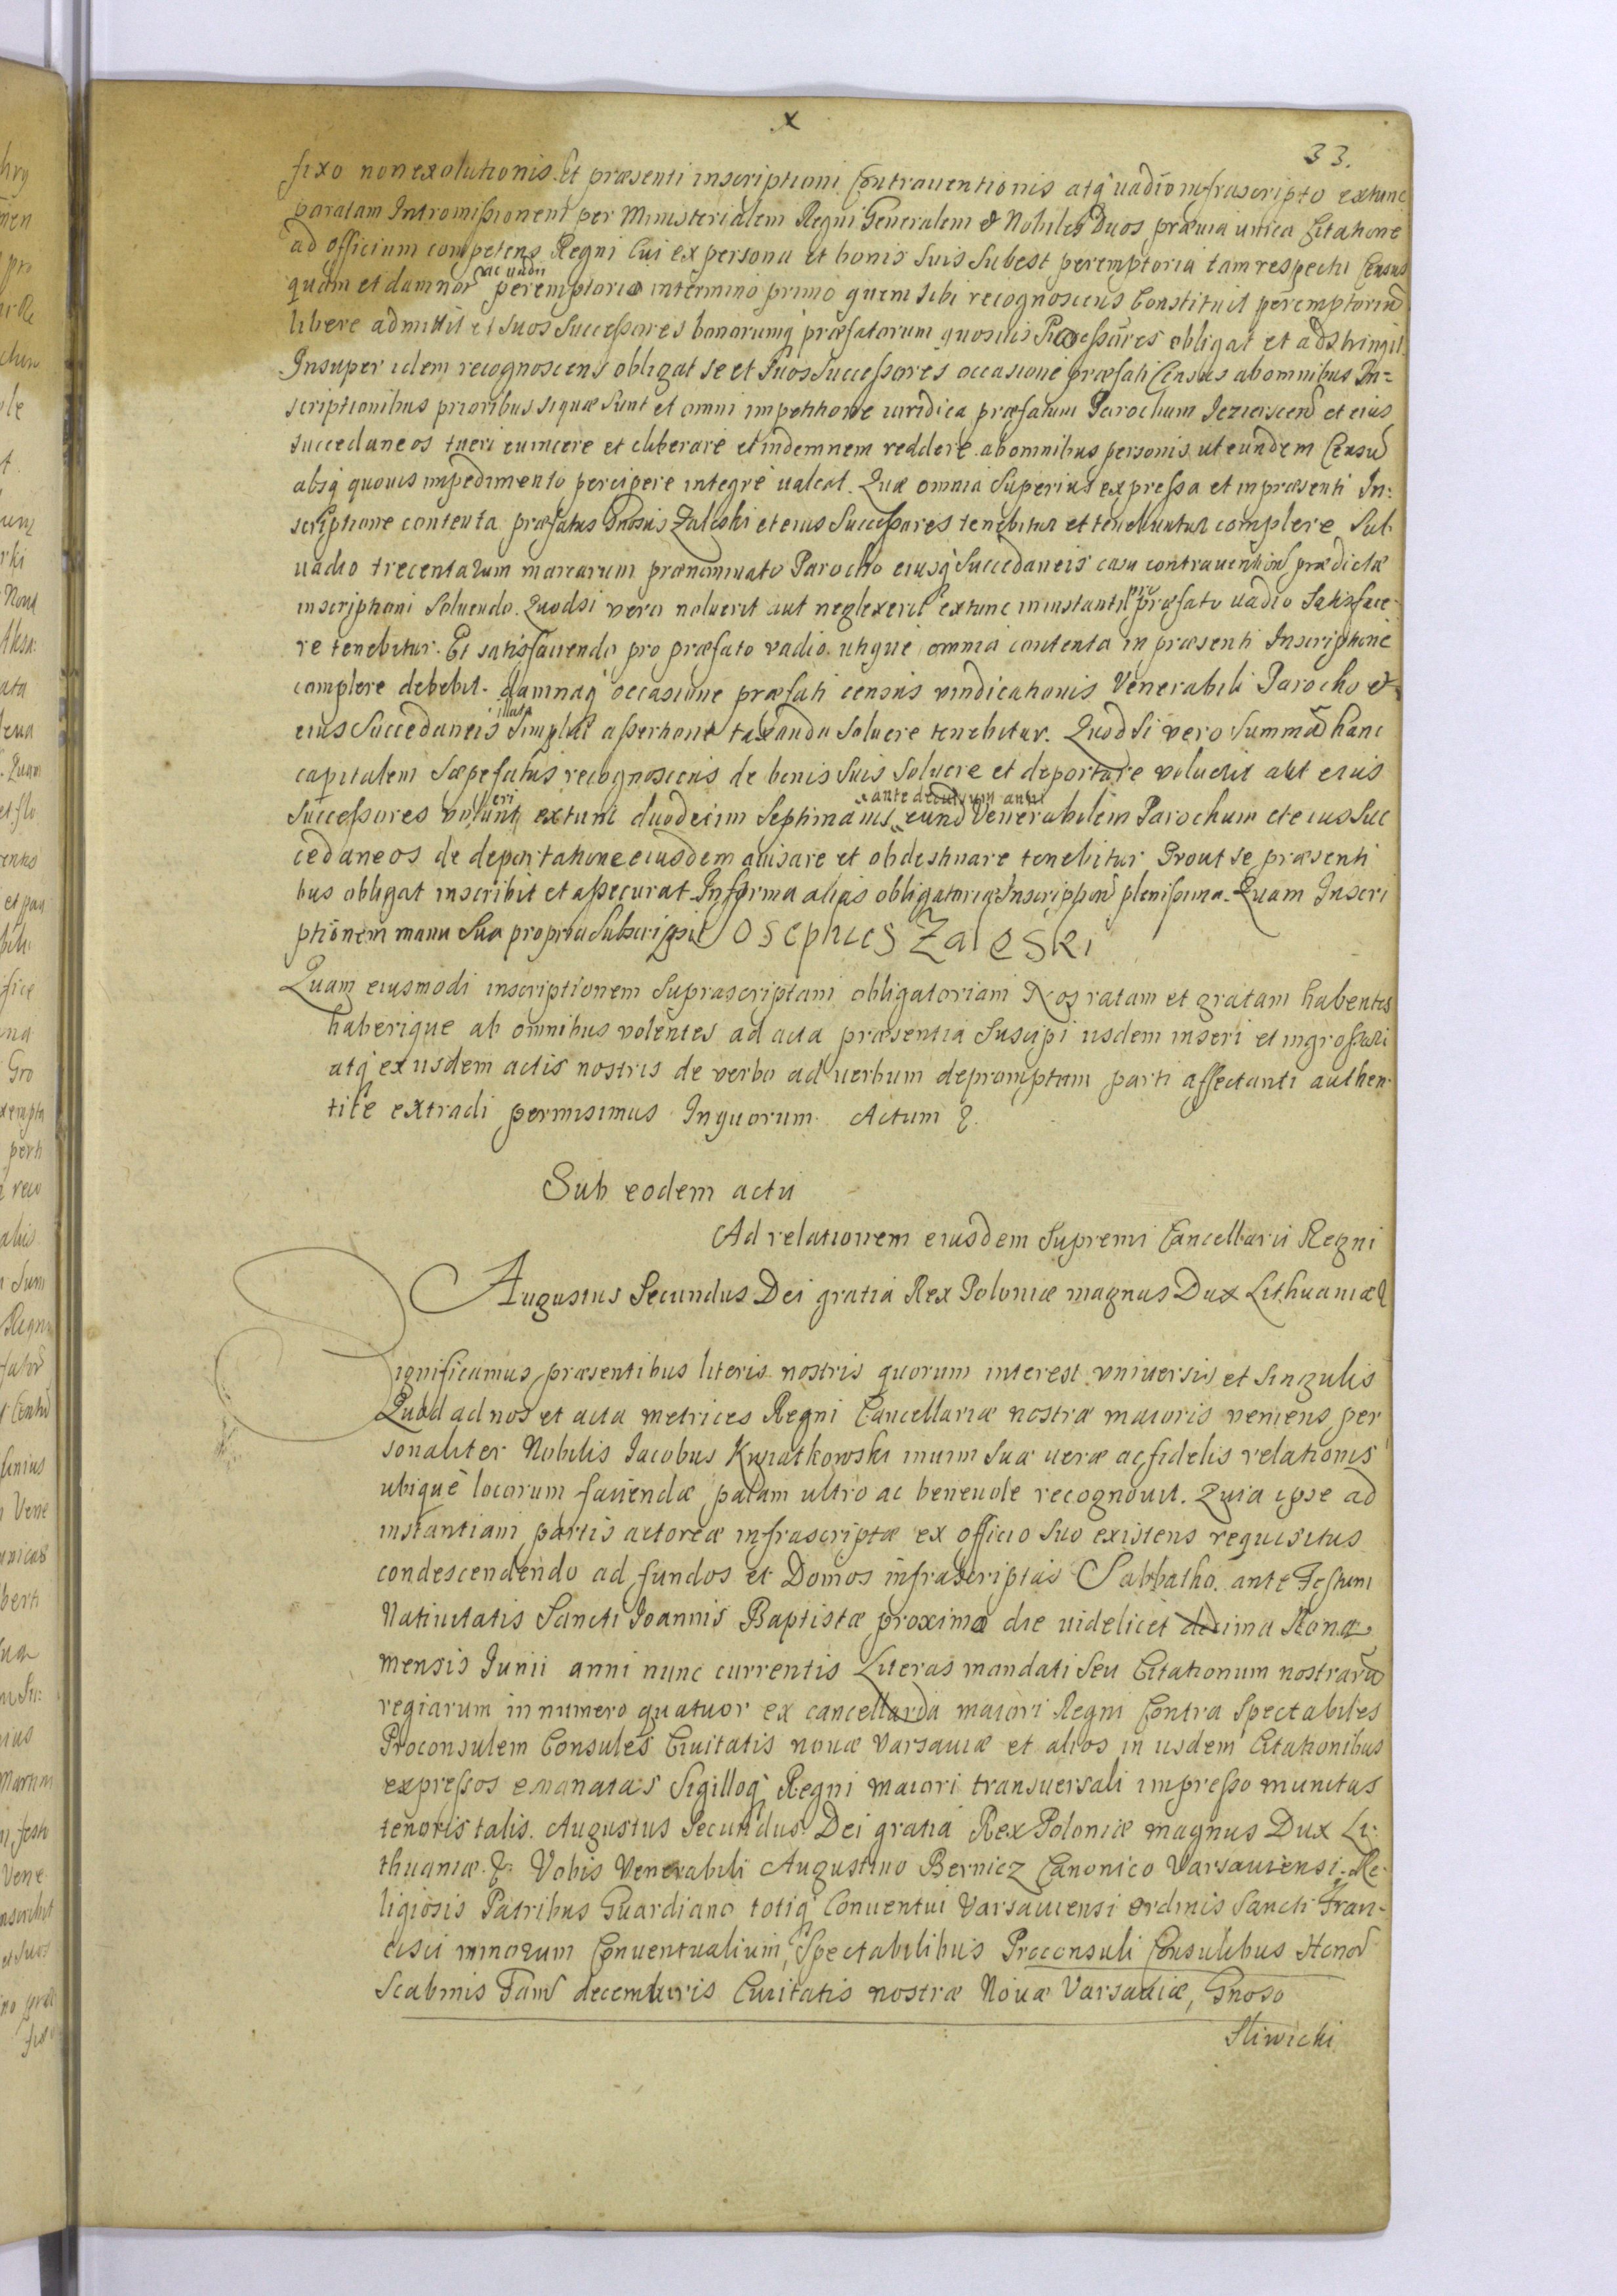 x
33.
fixo nonexolutionis. Et præsenti inscriptioni Contrauentionis atq uadio infrascripto extunc
paratam Intromissionem per Ministerialem Regni Generalem & Nobiles Duos præuia unica Citatione
ad officium competens Regni Cui ex persona et bonis suis subest peremptoria tam respectu Census
ac uadii
quam et damnor peremptorio in termino primo quem sibi recognoscens Constituit peremptorium
libere admittit et suos Successores bonorumq præfatorum quosuis Possessores obligat et adstringit.
Insuper idem recognoscens obligat se et Suos Successores occasione præfati Census ab omnibus In=
scriptionibus prioribus si quæ sunt et omni impetitione iuridica præfatum Parochum et eius
succedaneos tueri euincere et eliberare et indemnem reddere ab omnibus personis ut eundem Censu
absq quouis impedimento percipere integre ualeat. Quæ omnia Superius expressa et in præsenti In:
scriptione contenta præfatus Gnosus Zaleski et eius Successores tenebitur et tenebuntur complere Sub
uadio trecentarum marcarum prænominato Parocho eiusq Succedaneis casu contrauention prædictæ
inscriptioni Soluendo. Quodsi vero noluerit aut neglexerit extunc in instanti pro præfato uadio Satisface
re tenebitur. Et satisfaciendo pro præfato vadio utique omnia contenta in præsenti Inscriptione
complere debebit. damnaq occasione præfati census vindicationis Venerabili Parocho et
illata
eius Succedaneis Simplici assertione taxanda soluere tenebitur. Quod si vero Summam hanc
capitalem Sæpefatus recognoscens de bonis suis soluere et deportare voluerit aut eius
eri ante decursum anni
Successores voluerint extunc duodecim Septimanis eund Venerabilem Parochum et eius Suc
cedaneos de deportatione eiusdem auisare et obdestinare tenebitur Prout se præsenti
bus obligat inscribit et assecurat In forma alias obligatoriæ plenissima. Quam Inscri
ptionem manu Sua propria Subscripsit Josephus Zaleski
Quam eiusmodi inscriptionem Suprascriptam obligatoriam Nos ratam et gratam habentes
haberique ab omnibus volentes ad acta præsentia Suscipi iisdem inseri et ingrossari
atq ex iisdem actis nostris de verbo ad uerbum depromptam parti affectanti authen
tice extradi permisimus In quorum Actum &
Sub eodem actu
Ad relationem eiusdem Supremi Cancellarii Regni
Augustus Secundus Dei gratia Rex Poloniæ magnus Dux Lithuaniæ &
Significamus præsentibus literis nostris quorum interest vniuersis et singulis
Quod ad nos et acta metrices Regni Cancellariæ nostræ maioris veniens per
sonaliter Nobilis Jacobus Kwiatkowski in uim suæ ueræ ac fidelis relationis
ubique locorum faciendæ palam ultro ac beneuole recognouit. Quia ipse ad
instantiam partis actoreæ infrascriptæ ex officio suo existens requisitus
condescendendo ad fundos et Domos infrascriptas Sabbatho ante Festum
Natiuitatis Sancti Joannis Baptistæ proximo die uidelicet decima Nona
mensis Junii anni nunc currentis Literas mandati seu Citationum nostraru
regiarum in numero quatuor ex cancellaria maiori Regni Contra Spectabiles
Proconsulem Consules Ciuitatis nouæ Varsauiæ et alios in iisdem Citationibus
expressos emanatas Sigilloq Regni maiori transuersali impresso munitas
tenoris talis. Augustus Secundus Dei gratia Rex Poloniæ magnus Dux Li:
thuaniæ & Vobis Venerabili Augustino Bernicz Canonico Varsauiensi. Re
ligiosis Patribus Guardiano totiq Conuentui Varsauiensi ordinis Sancti Fran=
cisci minorum Conuentualium, Spectabilibus Proconsuli Consulibus Honor
Scabinis Fam decemuiris Ciuitatis nostræ Nouæ Varsauiæ, Gnoso
Sliwicki